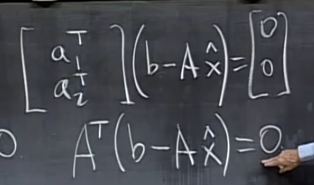 [a₁ᵀ a₂ᵀ](b - Ax̂) = [0 0]
0 Aᵀ(b - Ax̂) = 0